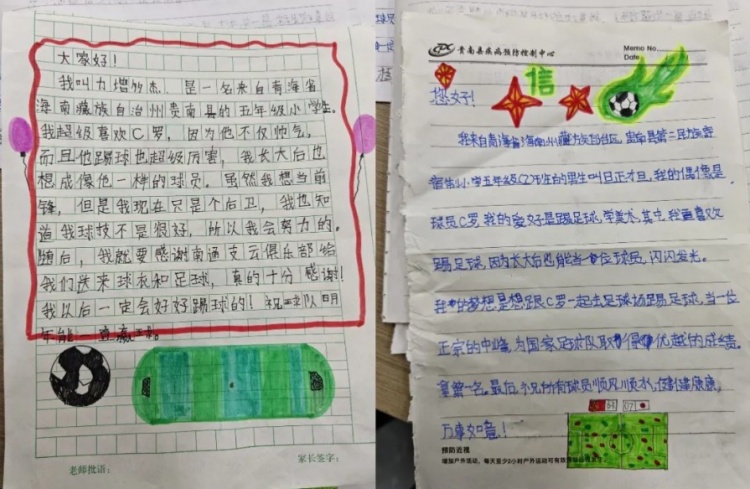 大家好！
我叫力增多杰，是一名来自青海省
海南藏族自治州贵南县的五年级小学生。
我超级喜欢C罗，因为他不仅帅气，
而且他踢球也超级厉害，我长大后也
想成像他一样的球员。虽然我想当前
锋，但是我现在只是个后卫，我也知
道我球技不是很好，所以我会努力的。
随后，我就要感谢南通支云俱乐部给
我们送来球衣和足球，真的十分感谢！
我以后一定会好好踢球的！祝球队明
年能一直赢球。
老师批语：
家长签字：
贵南县疾病预防控制中心
Memo No.
Date
信
您好！
我来自青海省海南州藏方族自治区，贵南县第二民族寄
宿制小学五年级(2)班的男生叫旦正才旦，我的偶像是
球员C罗，我的爱好是踢足球，学美术，其中我喜欢
踢足球，因为长大后也能当一位球员，闪闪发光。
我的梦想是想跟C罗一起去足球场踢足球，当一位
正宗的中锋，为国家足球队取得优越的成绩。
拿第一名。最后，祝所有球员顺风顺水，健健康康，
万事如意！
预防近视
增加户外活动，每天至少2小时户外活动可有效